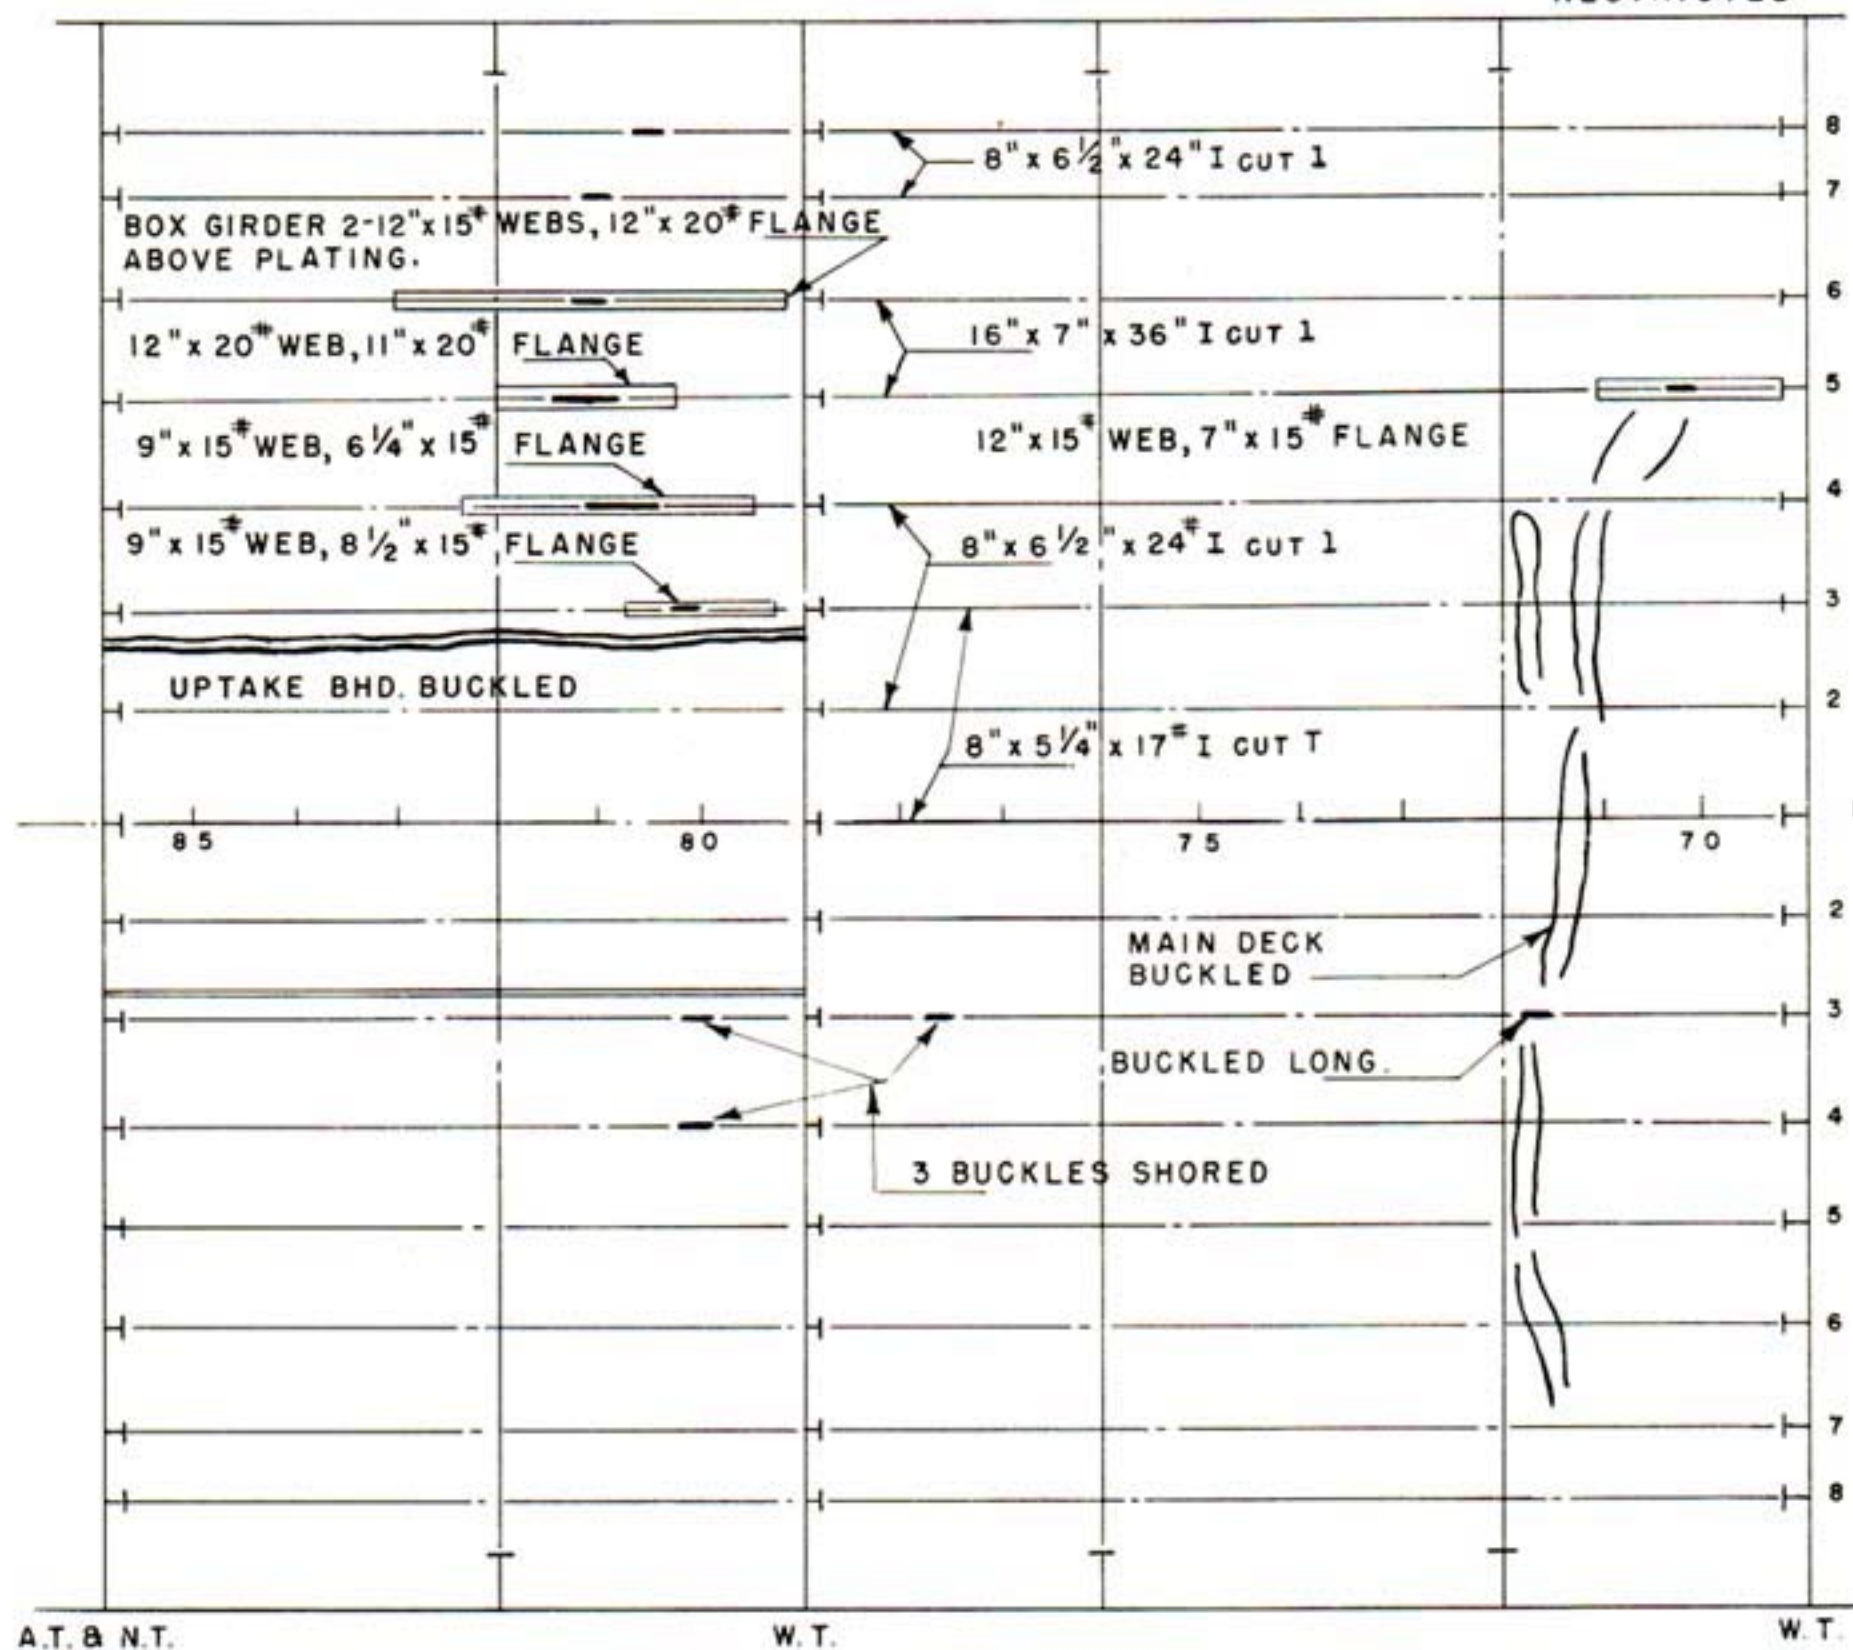 8
8" x 6 1/2" x 24" I CUT 1
7
BOX GIRDER 2-12" x 15# WEBS, 12" x 20# FLANGE
ABOVE PLATING.
6
12" x 20# WEB, 11" x 20# FLANGE
16" x 7" x 36" I CUT 1
5
9" x 15# WEB, 6 1/4" x 15# FLANGE
12" x 15# WEB, 7" x 15# FLANGE
4
9" x 15# WEB, 8 1/2" x 15# FLANGE
8" x 6 1/2" x 24# I CUT 1
3
UPTAKE BHD. BUCKLED
2
8" x 5 1/4" x 17# I CUT T
85 80 75 70
2
MAIN DECK
BUCKLED
3
BUCKLED LONG.
4
3 BUCKLES SHORED
5
6
7
8
A.T. & N.T. W.T. W.T.